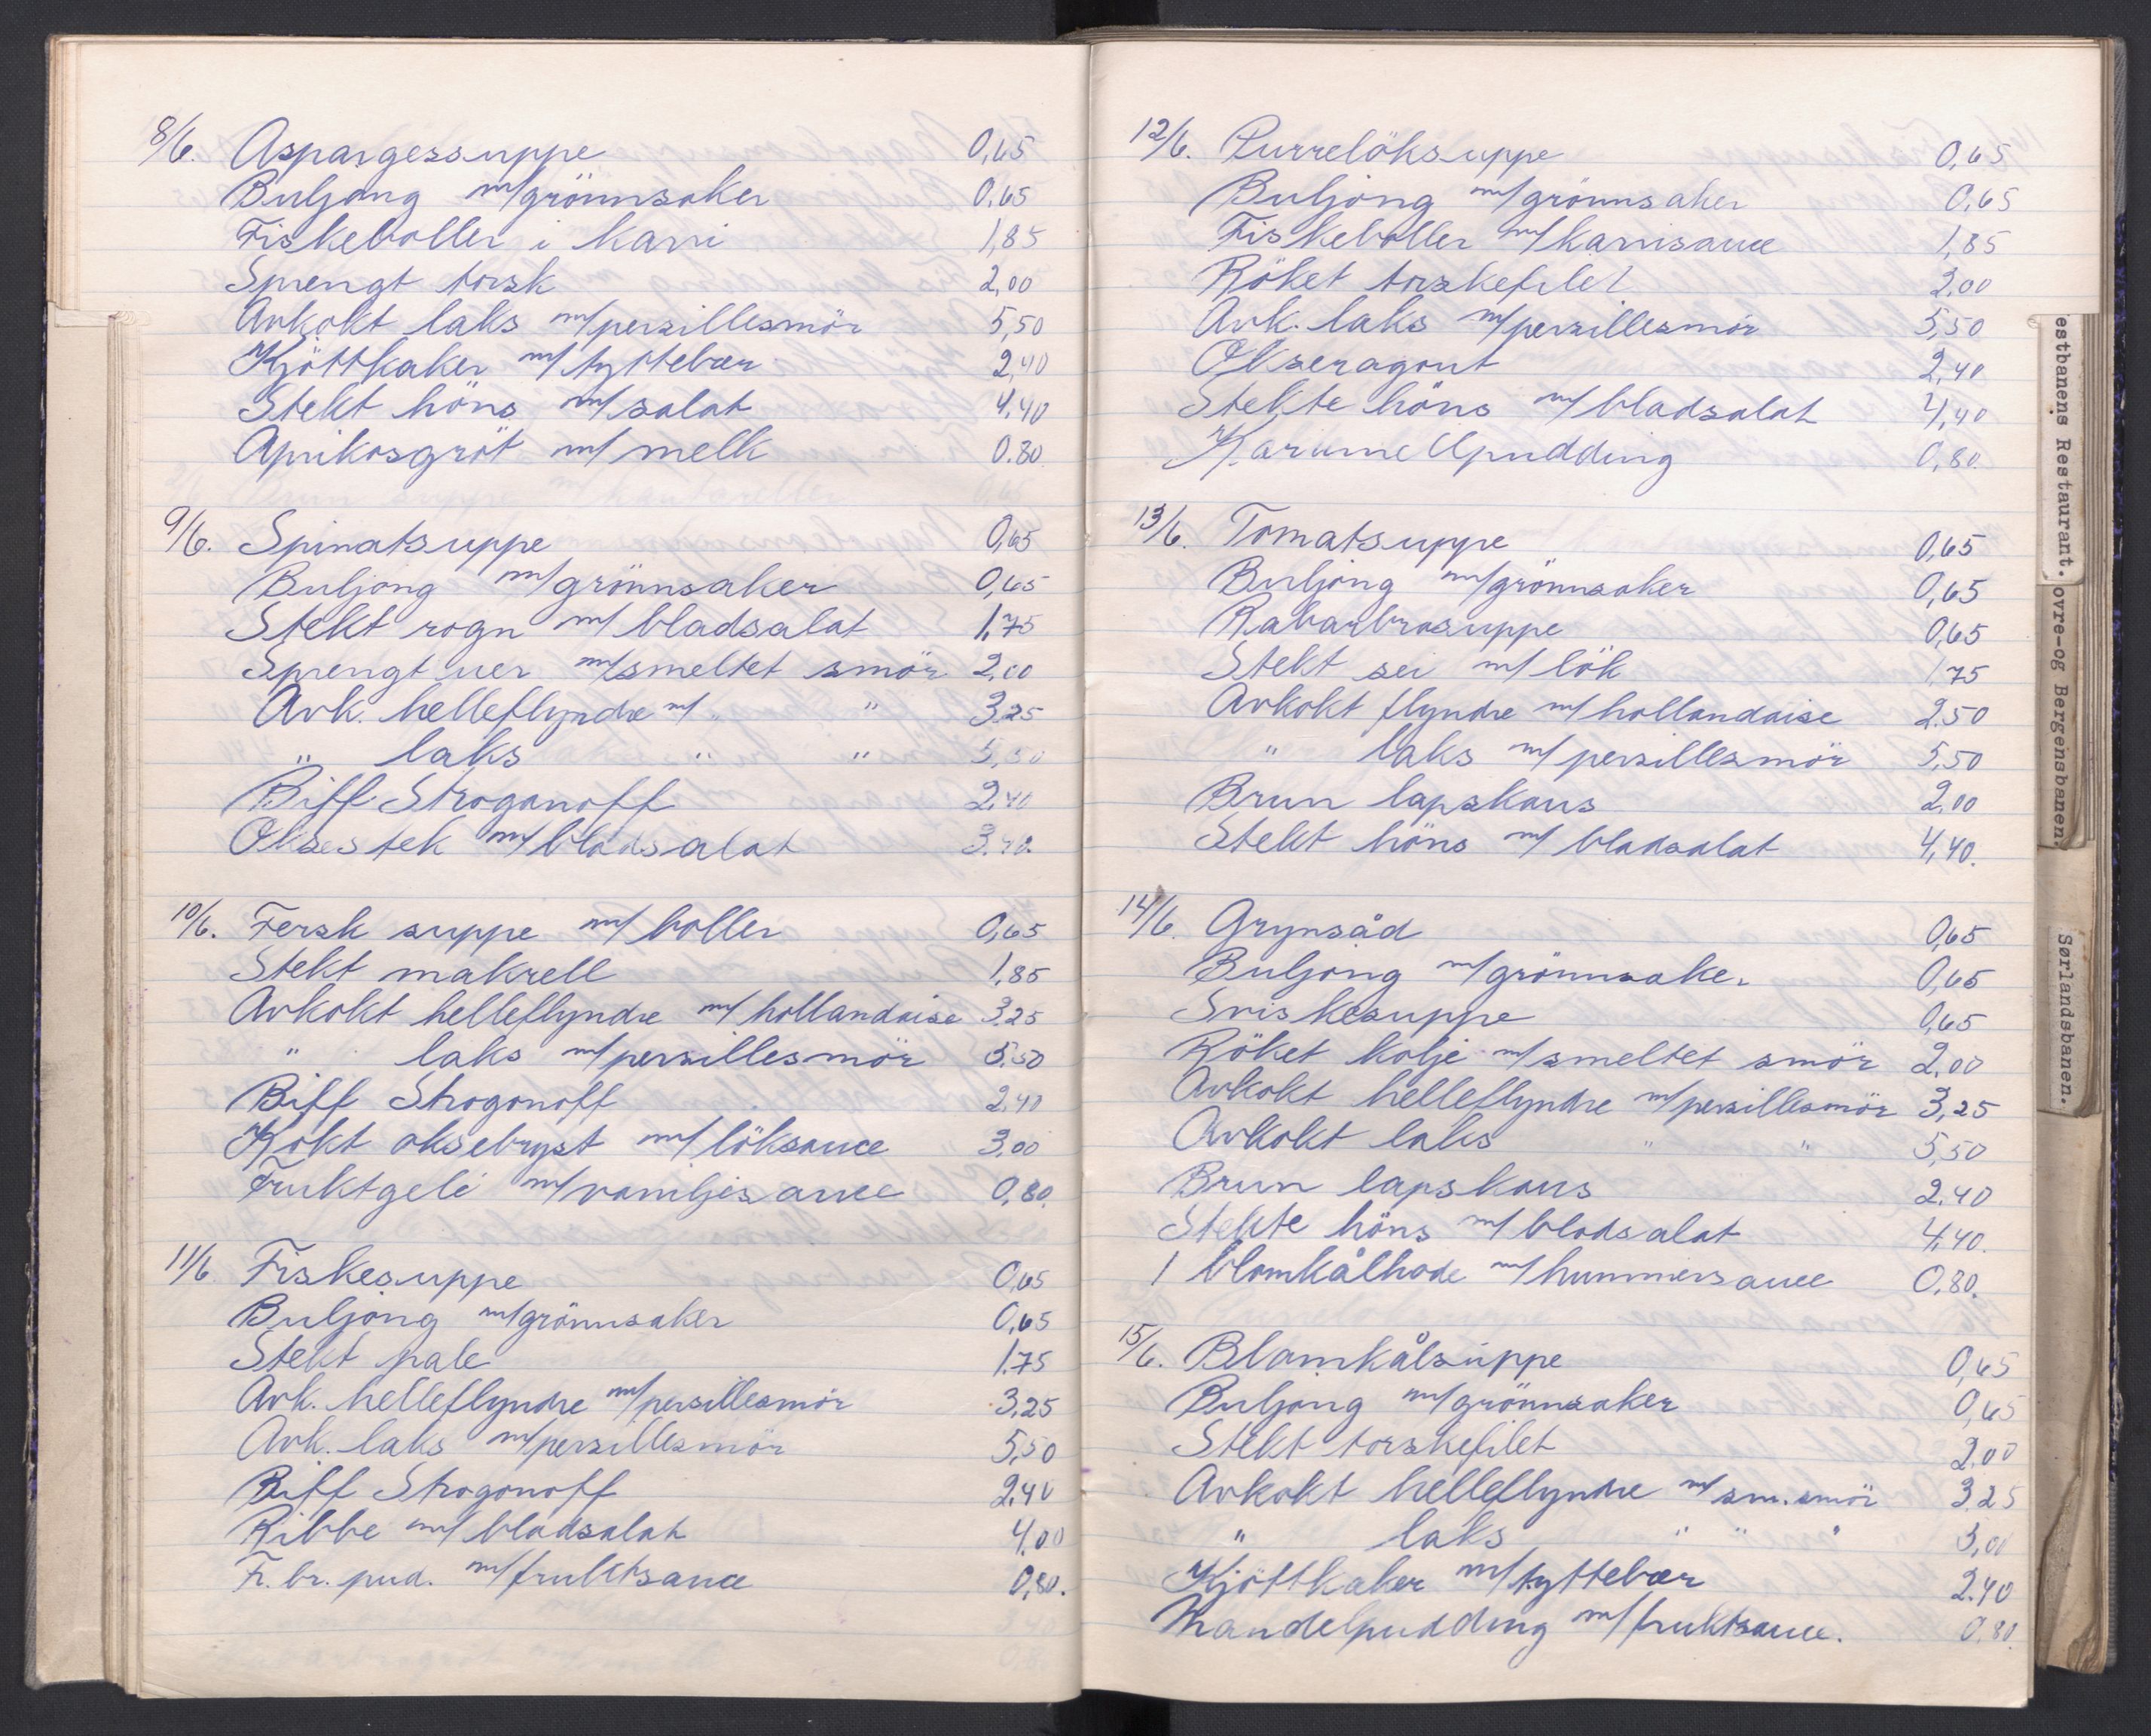 8/6. Aspargessuppe 0,65
Buljong m/grönnsaker 0,65
Fiskeboller i karri 1,85
Sprengt torsk 2,00
Avkokt laks m/persillesmör 5,50
Kjöttkaker m/tyttebær 2,40
Stekt höns m/salat 4,40
Aprikosgröt m/melk 0.80
9/6. Spinatsuppe 0,65
Buljong m/grönnsaker 0,65
Stekt rogn m/bladsalat 1,75
Sprengt uer m/smeltet smör 2,00
Avk. helleflyndre m/ " " 3,25
" laks " " 5,50
Biff Stroganoff 2,40
Oksestek m/bladsalat 3.40.
10/6. Fersk suppe m/boller 0,65
Stekt makrell 1,85
Avkokt helleflyndre m/hollandaise 3,25
" laks m/persillesmör 5.50
Biff Strogonoff 2,40
Kokt oksebryst m/löksauce 3,00
Fruktgelé m/vaniljesauce 0,80.
11/6 Fiskesuppe 0,65
Buljong m/grönnsaker 0,65
Stekt pale 1.75
Avk. helleflyndre m/persillesmör 3,25
Avk. laks m/persillesmör 5,50
Biff Strogonoff 2,40
Ribbe m/bladsalat 4,00
Fr. br. pud. m/fruktsauce 0,80.
12/6. Purrelöksuppe 0,65
Buljong m/grönnsaker 0,65
Fiskeboller m/karrisauce 1,85
Röket torskefilet 2,00
Avk. laks m/persillesmör 5,50
Okseragout 2,40
Stekte höns m/bladsalat 4,40
Karamellpudding 0,80.
13/6. Tomatsuppe 0,65
Buljong m/grönnsaker 0,65
Rabarbrasuppe 0,65
Stekt sei m/lök 1,75
Avkokt flyndre m/hollandaise 2.50
" laks m/persillesmör 5,50
Brun lapskaus 2,00
Stekt höns m/bladsalat 4,40.
14/6. Grynsåd 0,65
Buljong m/grönnsaker 0,65
Sviskesuppe 0,65
Röket kolje m/smeltet smör 2,00
Avkokt helleflyndre m/persillesmör 3,25
Avkokt laks " " 5,50
Brun lapskaus 2.40
Stekte höns m/bladsalat 4,40.
1 blomkålhode m/hummersauce 0,80.
15/6. Blomkålsuppe 0,65
Buljong m/grönnsaker 0,65
Stekt torskefilet 2.00
Avkokt helleflyndre m/sm.smör 3,25
" laks " " "
Kjöttkaker m/tyttebær 2.40
Mandelpudding m/fruktsauce. 0.80.
estbanens Restaurant.
ovre-og Bergensbanen.
Sørlandsbanen.